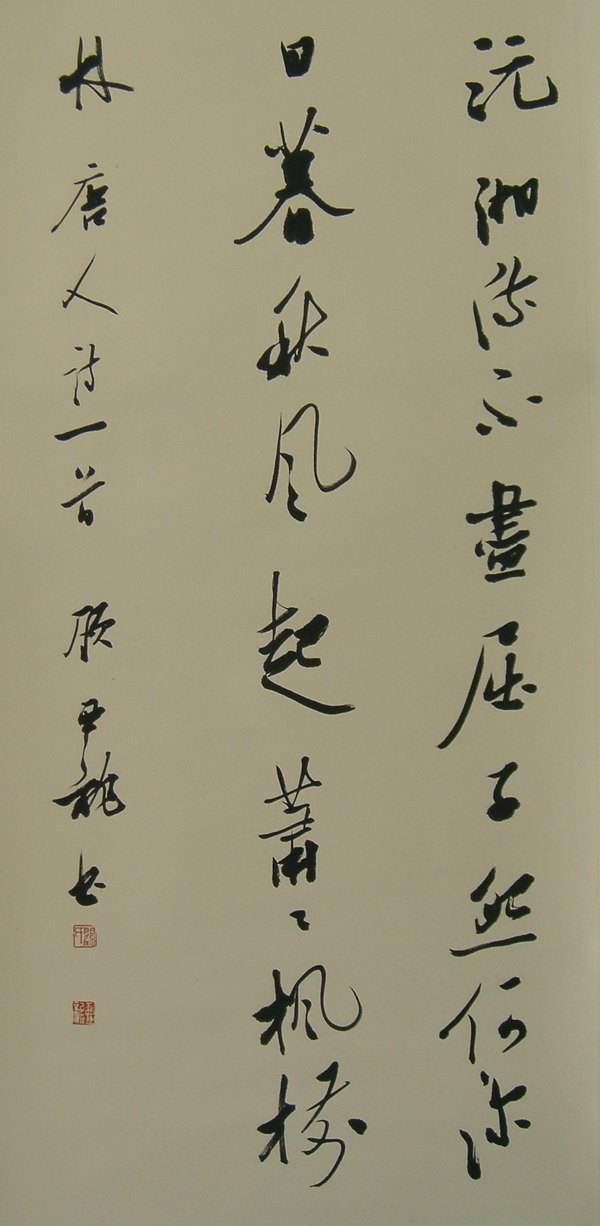 沅湘流不盡屈子怨何深
日暮秋風起蕭〻楓樹
林 唐人詩一首 龍書